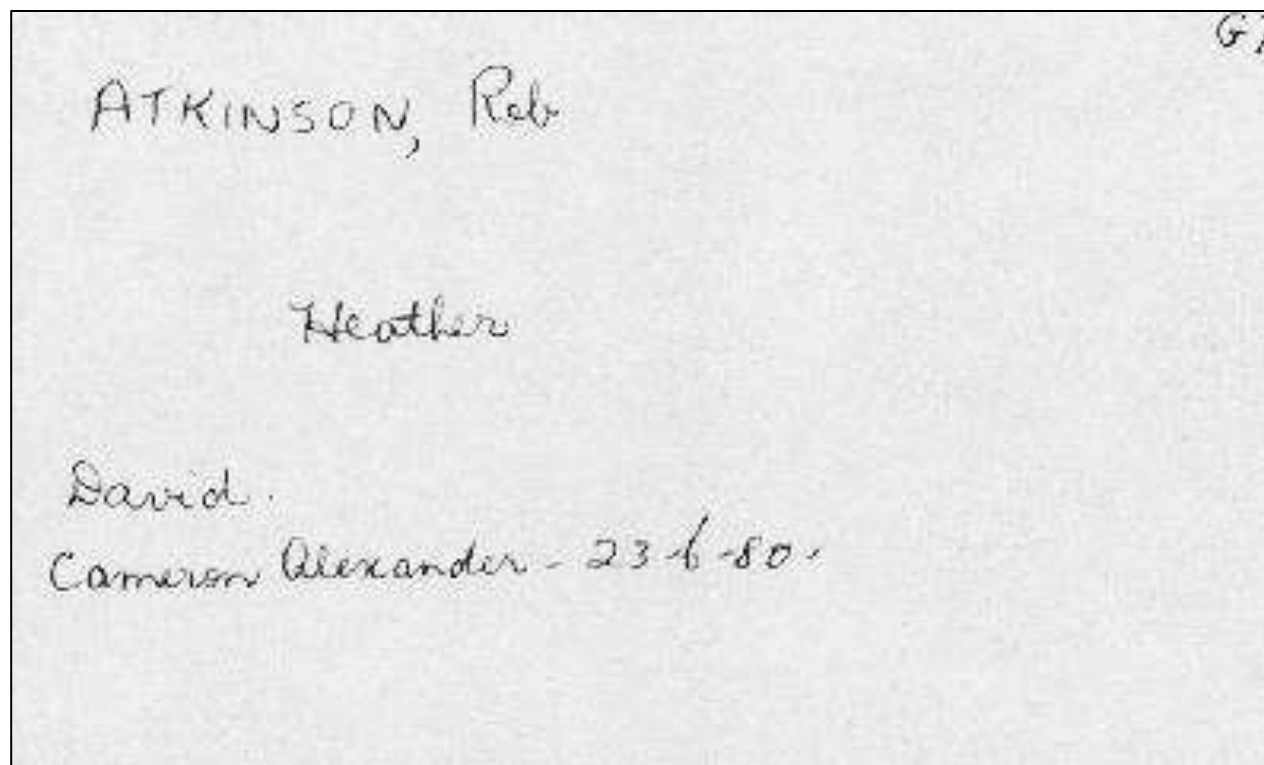 ATKINSON, Rob
Heather
David.
Cameron Alexander - 23-6-80.